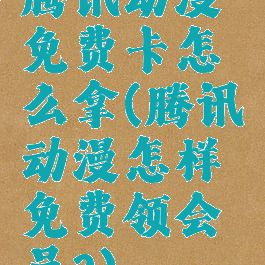 腾讯动漫
免费卡怎
么拿(腾讯
动漫怎样
免费领会
员?)